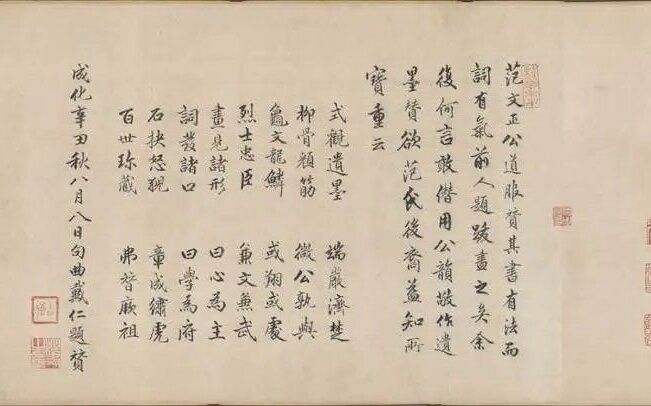 范文正公道服贊其書有法而
詞有氣前人題跋盡之矣余
復何言敢僭用公韻敬作遺
墨贊欲范氏後裔益知所
寶重云
式觀遺墨 端嚴濟楚
柳骨顏筋 微公孰與
龜文龍鱗 或翔或處
烈士忠臣 兼文兼武
畫見諸形 曰心為主
詞發諸口 曰學為府
石抉怒猊 章成繡虎
百世珍藏 弗替厥祖
成化辛丑秋八月八日句曲戴仁題贊